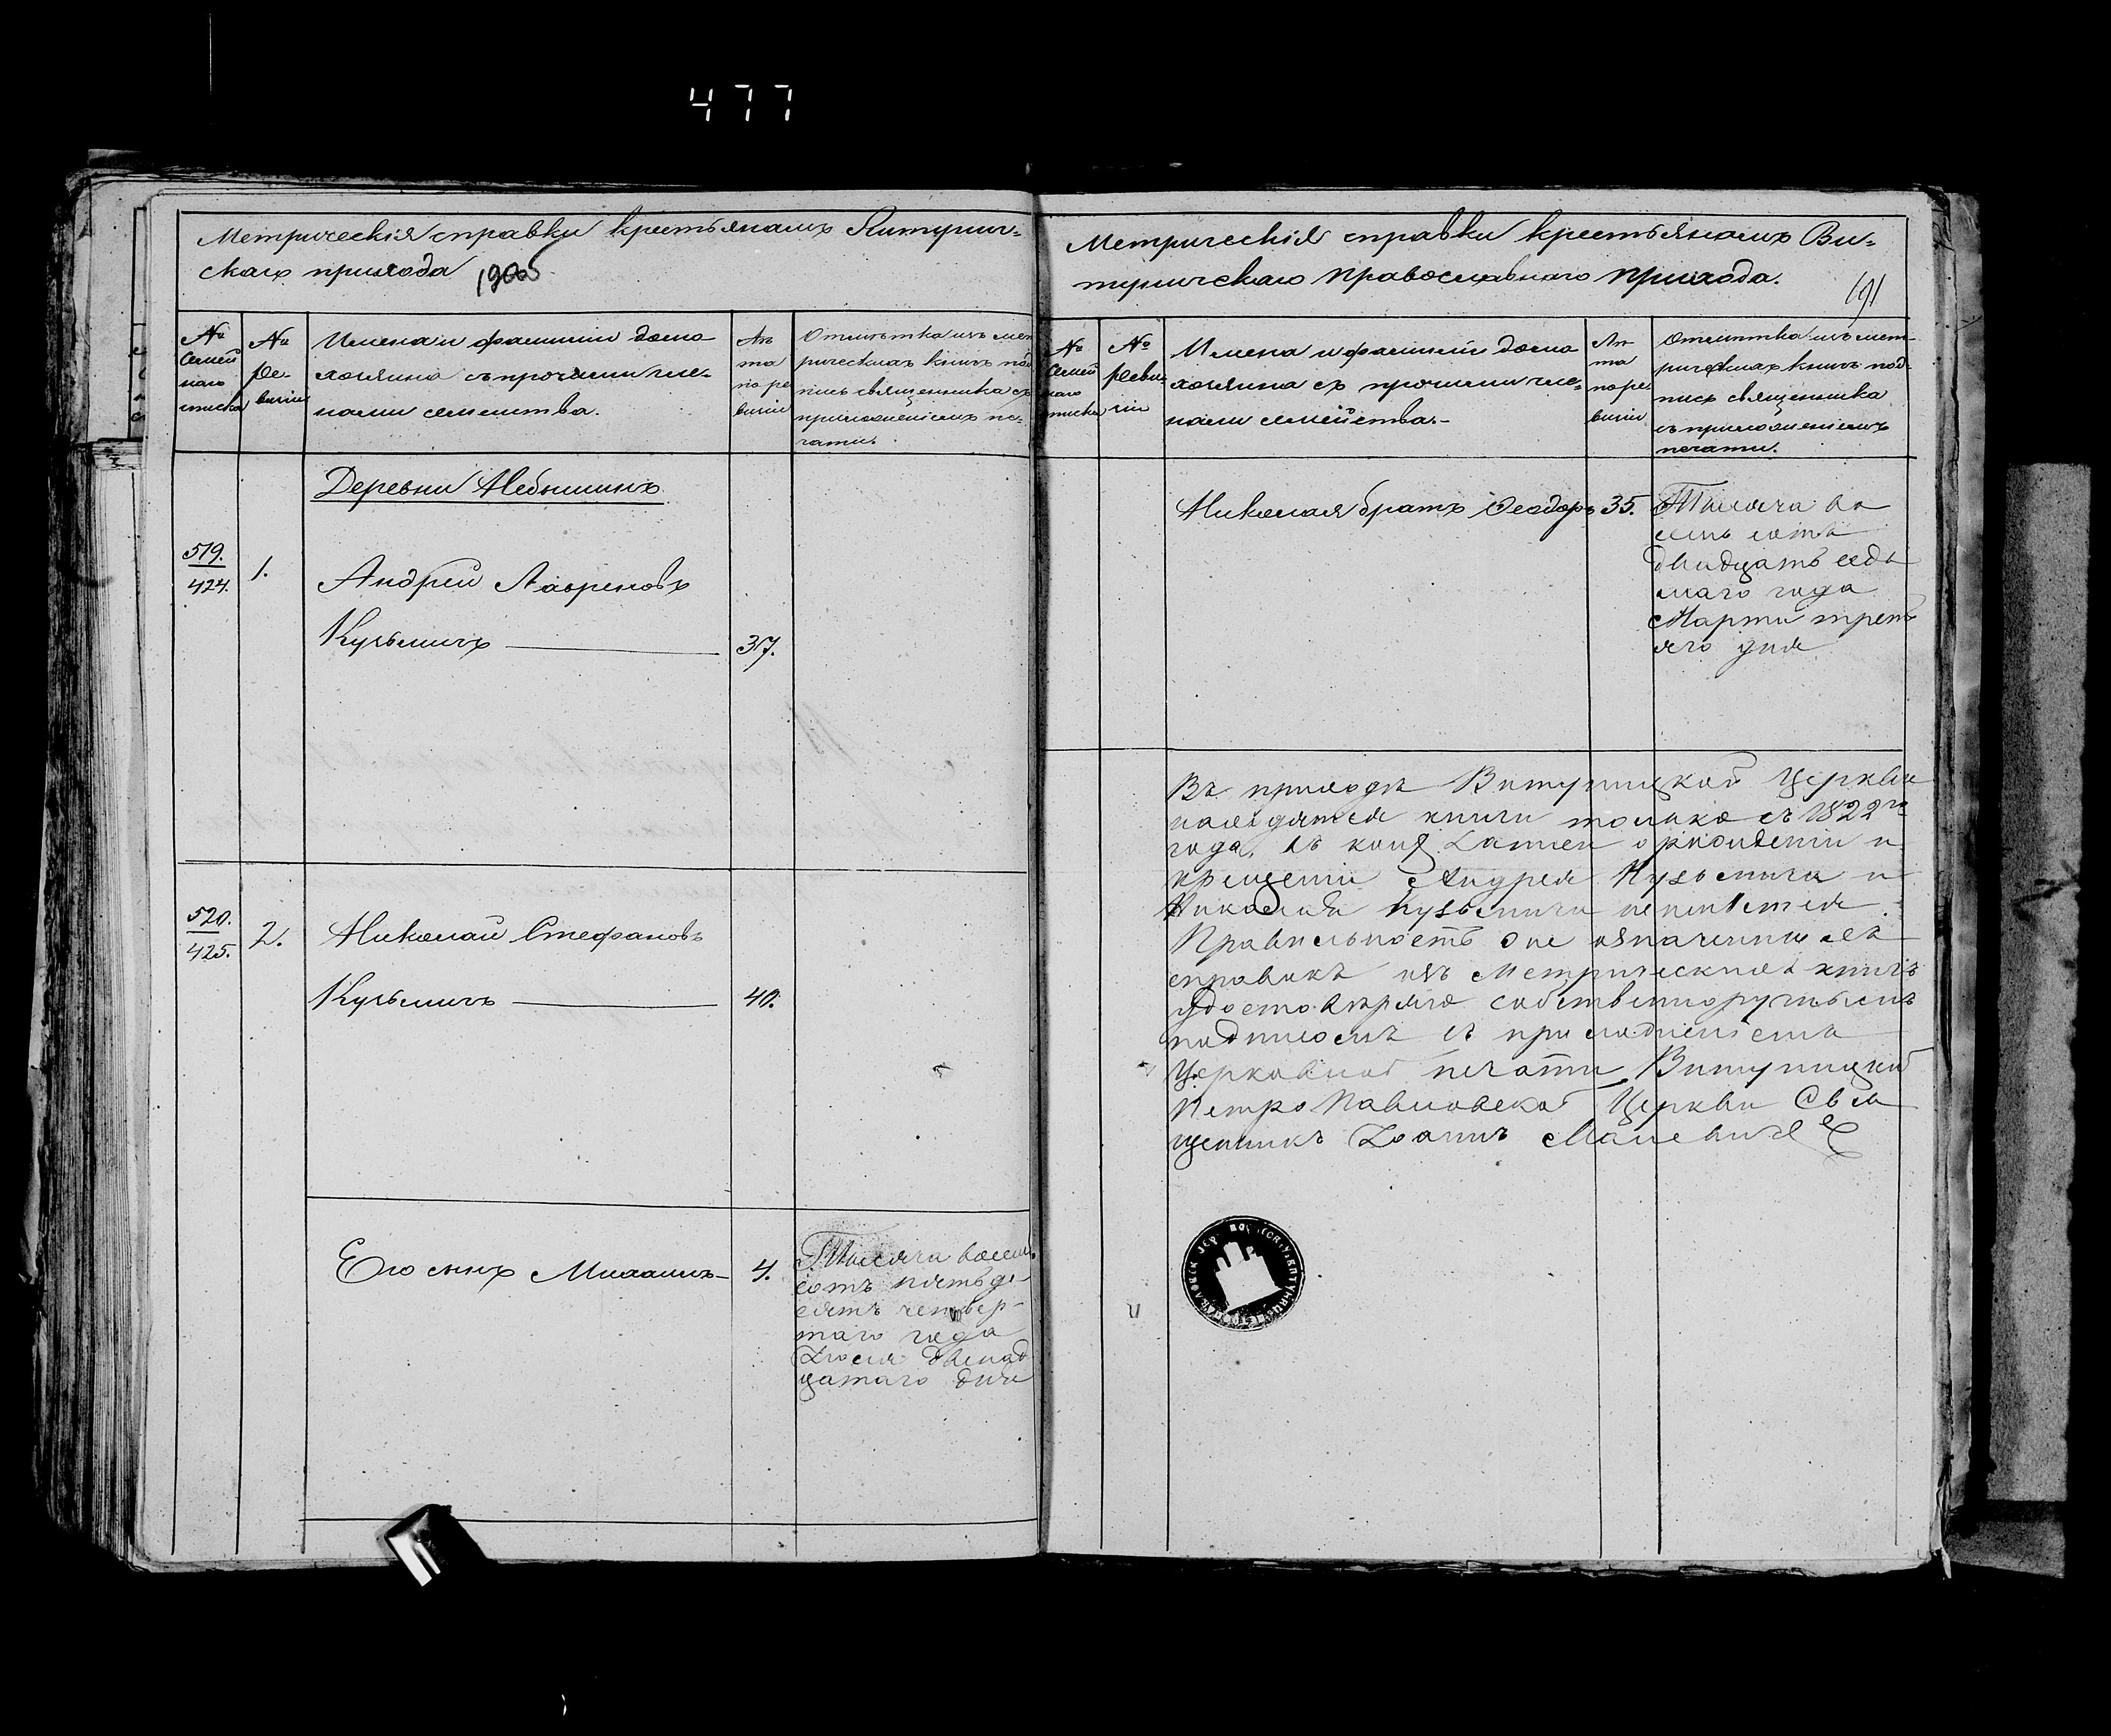 477
Метрическія справки крестьянамъ Витунич-
скаго прихода 1905
№ семей наго списка
№ Ре визіи
Имена и фамиліи домо хозяина съ прочими чле- нами семейства.
Лѣ та по ре визіи
Отмѣтка изъ мет рическихъ книгъ под пись священника съ приложеніемъ пе- чати.
Деревни Небышинъ
519. 424. 1. Андрей Лавреновъ
Кузьмичъ 37.
520. 425. 2. Николай Стефановъ
Кузьмичъ 40.
Его сынъ Михаилъ 4. Тысяча восемь
сотъ пятьде-
сятъ четвер-
таго года
двенад
цатаго дня
Метрическія справки крестьянамъ Ви-
туничскаго православнаго прихода.
191
№ Семей наго списка
№ Реви зіи
Имена и фамиліи домо хозяина съ прочими чле- нами семейства.
Лѣ та по ре визіи
Отмѣтка изъ мет- рическихъ книгъ под- пись священника съ приложеніемъ печати.
Николая братъ Феодоръ 35. Тысяча во
семь сотъ
двадцать седь
маго года
Марта треть
яго дня
Въ приходѣ Витуницкой Церкви
находятся книги только съ 1822го
года, въ коихъ записи о рожденіи и
крещеніи Андрея Кузьмича и
Николая Кузьмича неимѣется.
Правильность означенныхъ
справокъ изъ Метрическихъ книгъ
удостовѣряю собственноручнымъ
подписомъ съ приложеніемъ
Церковной печати Витуницкой
Петро Павловской Церкви Свя
щенникъ Іоаннъ